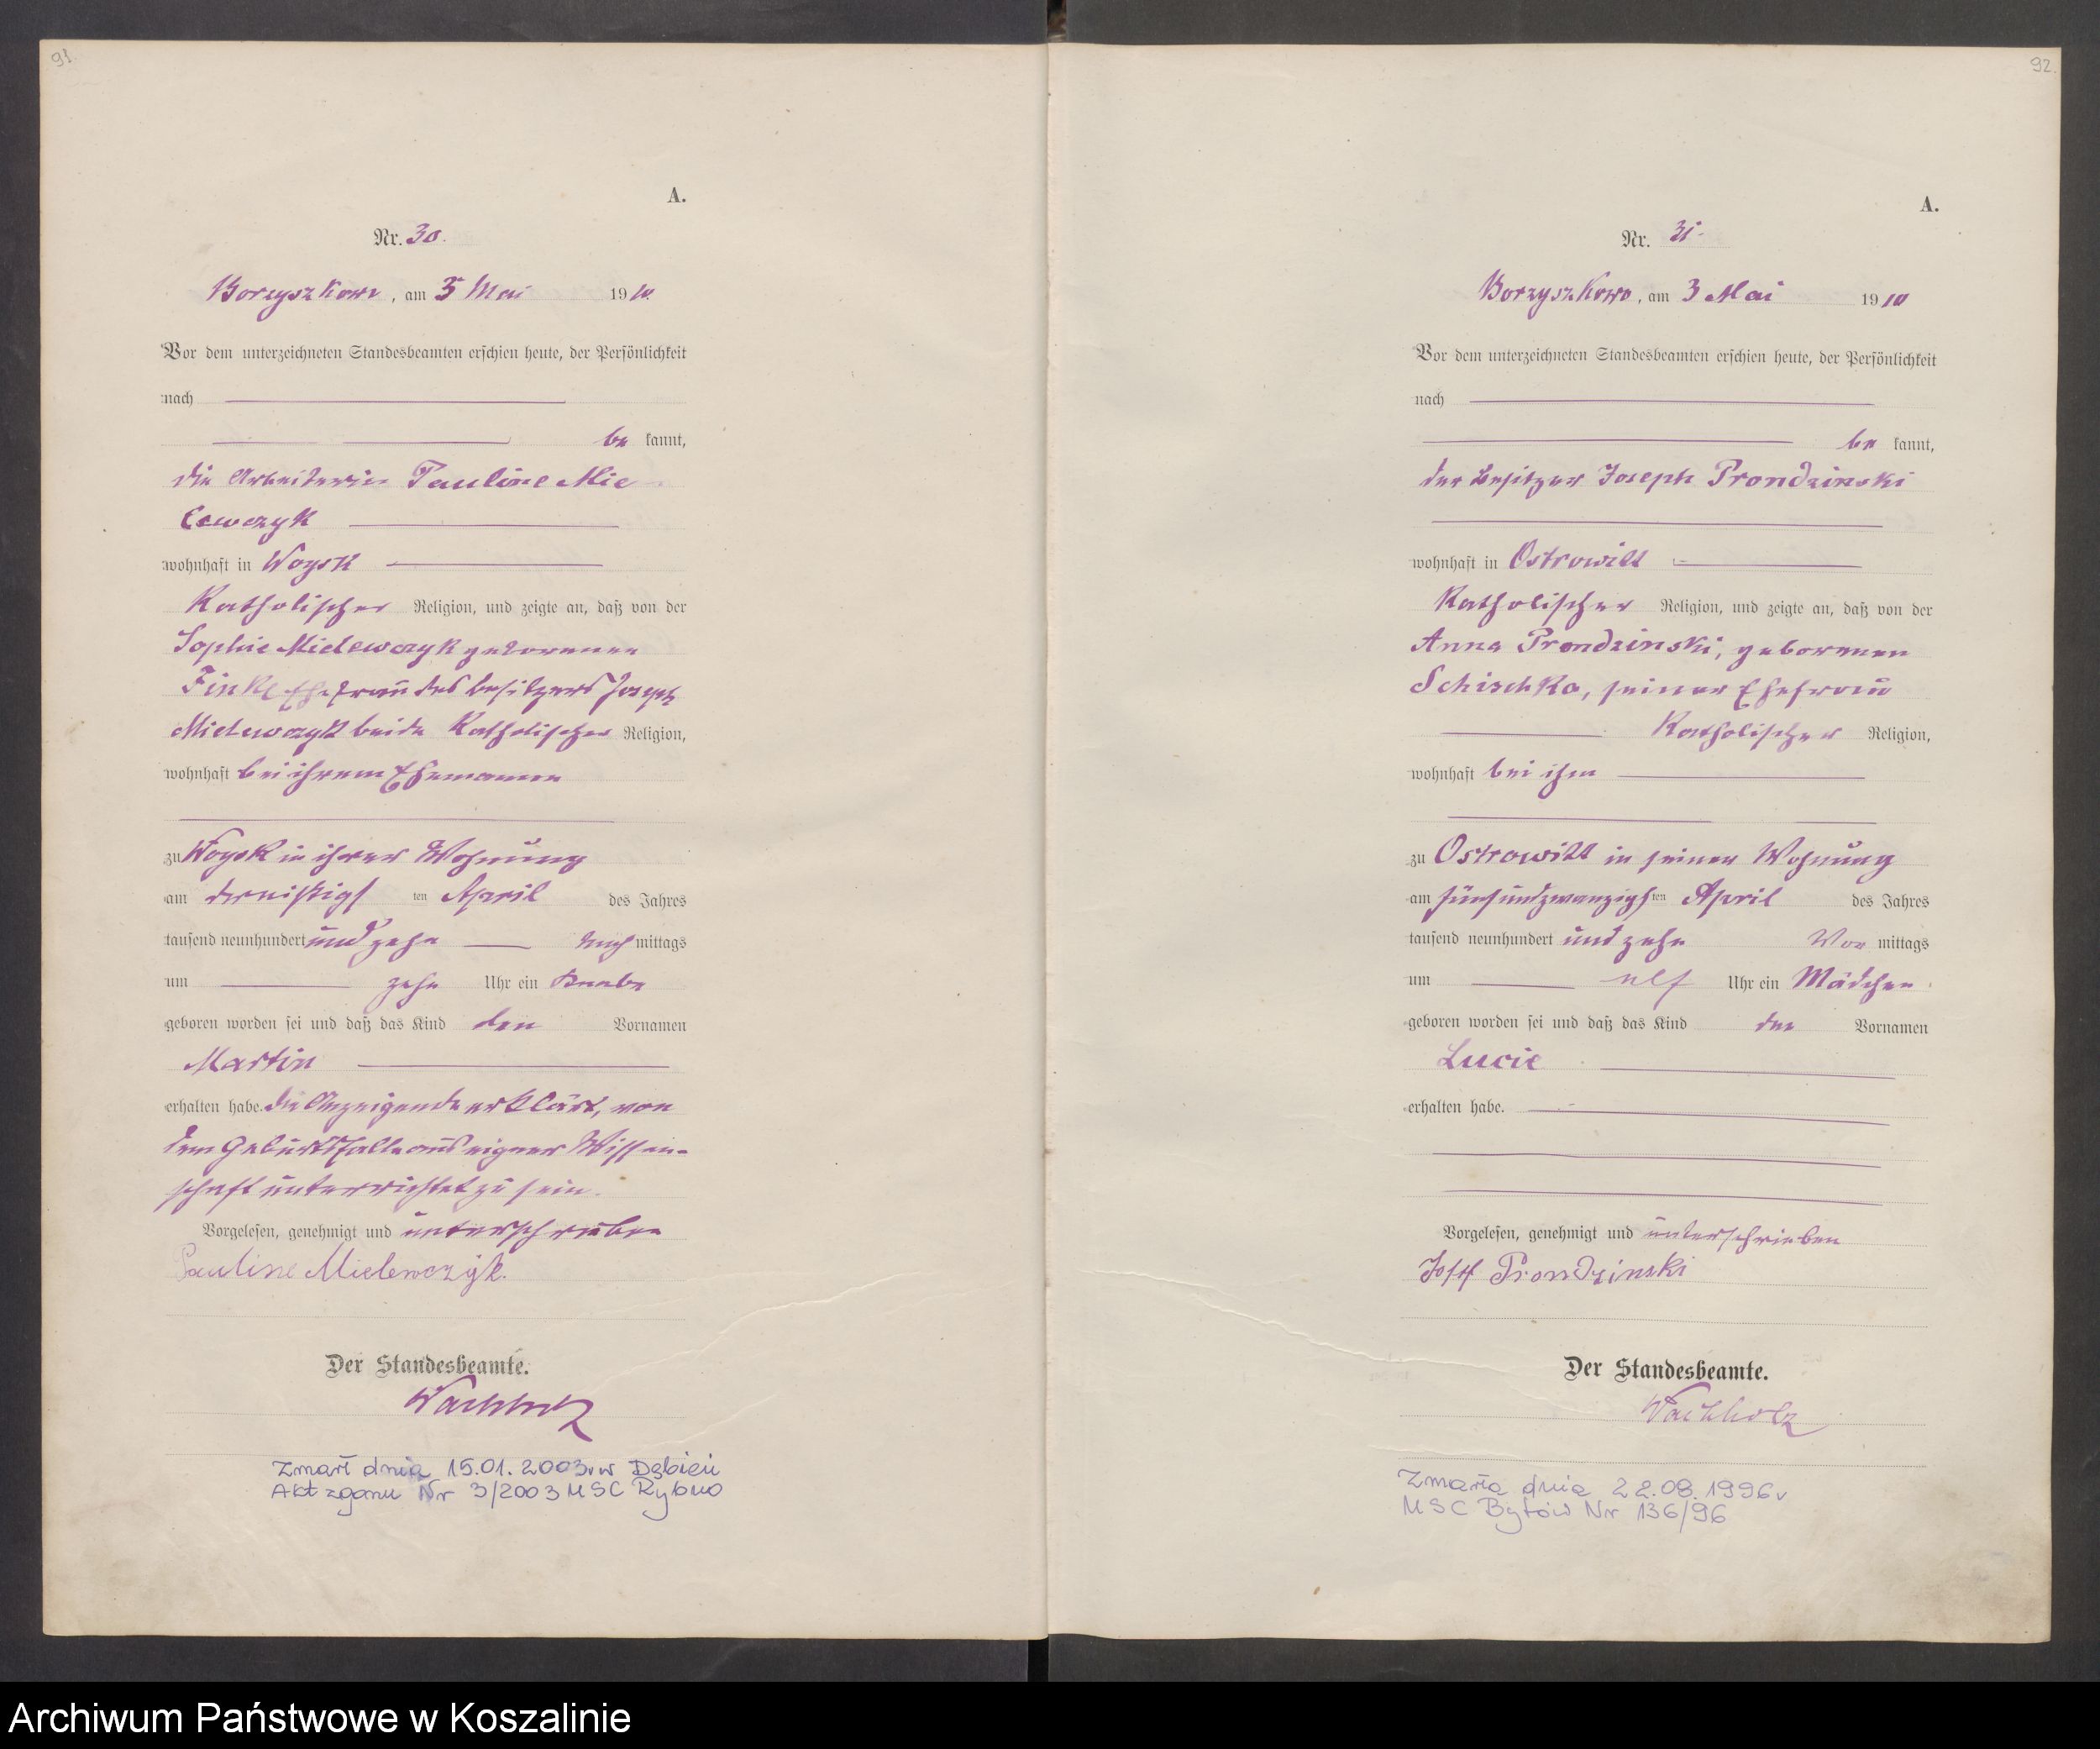 91.
A.
Nr. 30.
Borzyszkowo, am 3 Mai 1910.
Vor dem unterzeichneten Standesbeamten erschien heute, der Persönlichkeit
nach
be kannt,
die Arbeiterin Pauline Mie
lewczyk
wohnhaft in Woysk
Katholischer Religion, und zeigte an, daß von der
Sophie Mielewczyk geborenen
Finke Ehefrau des Besitzers Joseph
Mielewczyk beide Katholischer Religion,
wohnhaft bei ihrem Ehemanne
zu Woysk in ihrer Wohnung
am dreißigsten April des Jahres
tausend neunhundert und zehn Nachmittags
um zehn Uhr ein Knabe
geboren worden sei und daß das Kind den Vornamen
Martin
erhalten habe. Die Anzeigende erklärt, von
dem Geburtsfalle aus eigner Wissen-
schaft unterrichtet zu sein.
Vorgelesen, genehmigt und unterschrieben
Pauline Mielewczyk.
Der Standesbeamte.
Wachholz
Zmarł dnia 15.01.2003r w Dębień
Akt zgonu Nr 3/2003 USC Rybno
92.
A.
Nr. 31.
Borzyszkowo, am 3 Mai 1910
Vor dem unterzeichneten Standesbeamten erschien heute, der Persönlichkeit
nach
be kannt,
der Besitzer Joseph Prondzinski
wohnhaft in Ostrowitt
Katholischer Religion, und zeigte an, daß von der
Anna Prondzinski, geborenen
Schischka, seiner Ehefrau
Katholischer Religion,
wohnhaft bei ihm
zu Ostrowitt in seiner Wohnung
am fünfundzwanzigsten April des Jahres
tausend neunhundert und zehn Vor mittags
um elf Uhr ein Mädchen
geboren worden sei und daß das Kind den Vornamen
Lucie
erhalten habe.
Vorgelesen, genehmigt und unterschrieben
Prondzinski
Der Standesbeamte.
Wachholz
Zmarła dnia 22.08.1996r
USC Bytów Nr 136/96
Archiwum Państwowe w Koszalinie